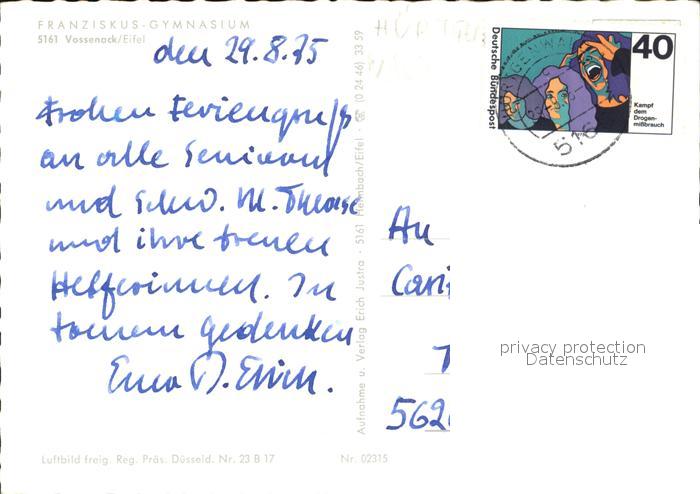 FRANZISKUS-GYMNASIUM
5161 Vossenack/Eifel
den 29.8.75
Frohen Feriengruß
an alle
und Schw. M. Therese
und ihre treuen
Helferinnen. In
treuem Gedenken
Luftbild freig. Reg. Präs. Düsseld. Nr. 23 B 17
Nr. 02315
Aufnahme u. Verlag Erich Justra · 5161 Heimbach/Eifel · ☏ (0 24 46) 33 59
Deutsche Bundespost
40
Kampf
dem
Drogen-
mißbrauch
516
An
Cari
5620
privacy protection
Datenschutz